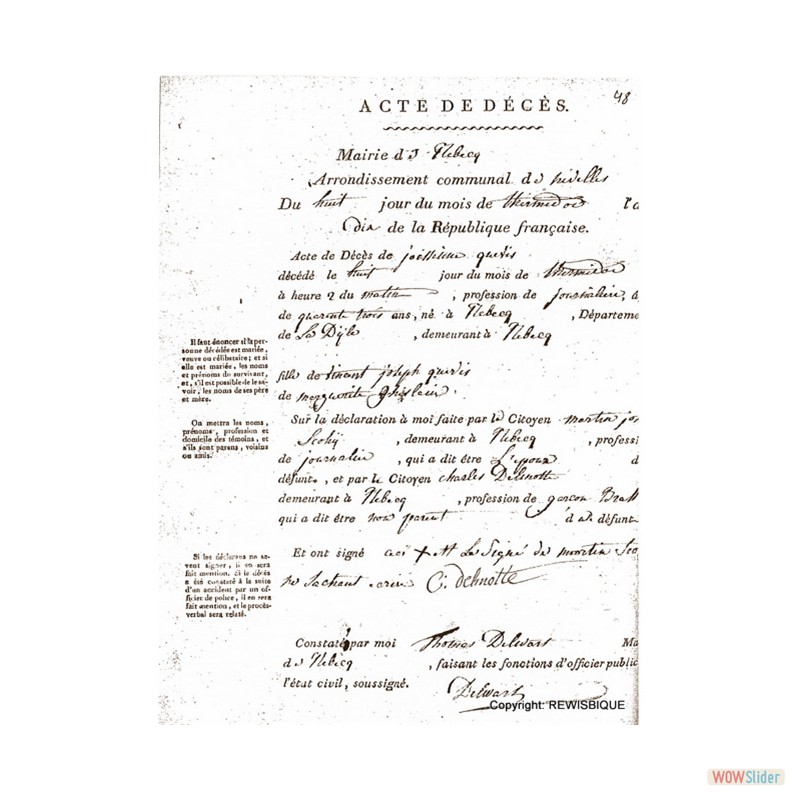 48
ACTE DE DÉCÈS.
Mairie de Rebecq
Arrondissement communal de nivelles
Du huit jour du mois de thermidor l'a
dix de la République française.
Acte de Décès de quévis
décédé le huit jour du mois de thermidor
à heure 2 du matin , profession de journalier, à
de quarante trois ans, né à Rebecq , Départeme
de La Dÿle , demeurant à Rebecq
Il faut énoncer si la per-
sonne décédée est mariée,
veuve ou célibataire; et si
elle est mariée, les noms
et prénoms du survivant,
et, s'il est possible de le sa-
voir, les noms de ses père
et mère.
fille de vincent joseph quévis
de marguerite Ghislain.
Sur la déclaration à moi faite par le Citoyen martin jos
On mettra les noms,
prénoms, profession et
domicile des témoins, et
s'ils sont parens, voisins
ou amis.
Scohÿ , demeurant à Rebecq , professi
de journalier , qui a dit être L'epoux d
défunte, et par le Citoyen charles Delnotte
demeurant à Rebecq , profession de garçon Brass
qui a dit être non parent d de défunt
Et ont signé aci + Le Signé de martin Sco
ne sachant ecrire C. delnotte
Si les déclarans ne sa-
vent signer, il en sera
fait mention. Si le décès
a été constaté à la suite
d'un accident par un of-
ficier de police, il en sera
fait mention, et le procès-
verbal sera relaté.
Constaté par moi Thomas Delwart Ma
de Rebecq , faisant les fonctions d'officier public
l'état civil, soussigné.
Delwart
Copyright: REWISBIQUE
WOWSlider